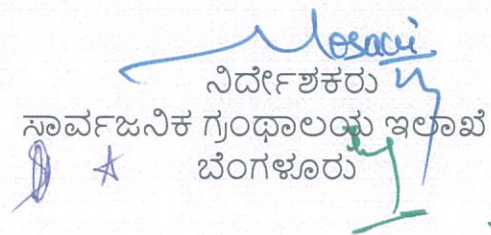 ನಿರ್ದೇಶಕರು
ಸಾರ್ವಜನಿಕ ಗ್ರಂಥಾಲಯ ಇಲಾಖೆ
ಬೆಂಗಳೂರು